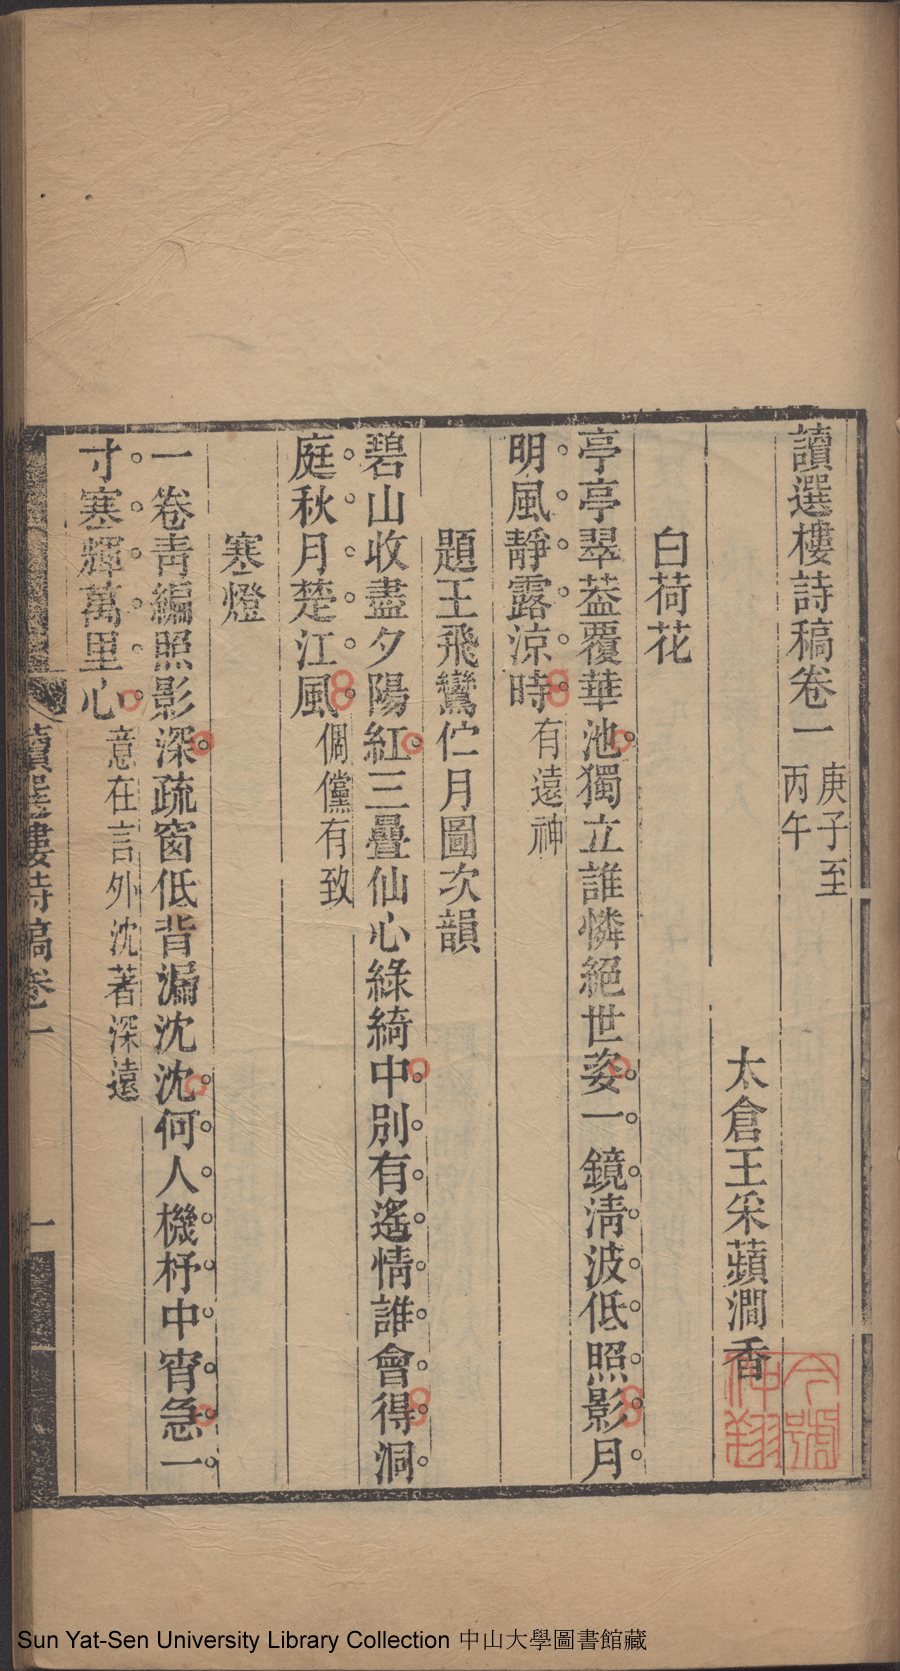 讀選樓詩稿卷一 庚子至
丙午
太倉王采蘋澗香
白荷花
亭亭翠葢覆華池獨立誰憐絕世姿一鏡淸波低照影月
明風靜露涼時 有遠神
題王飛鸞伫月圖次韻
碧山收盡夕陽紅三疊仙心綠綺中別有遙情誰會得洞
庭秋月楚江風 倜儻有致
寒燈
一卷靑編照影深疏窗低背漏沈沈何人機杼中宵急一
寸寒輝萬里心 意在言外沈著深遠
讀選樓詩稿卷一
一
Sun Yat-Sen University Library Collection 中山大學圖書館藏